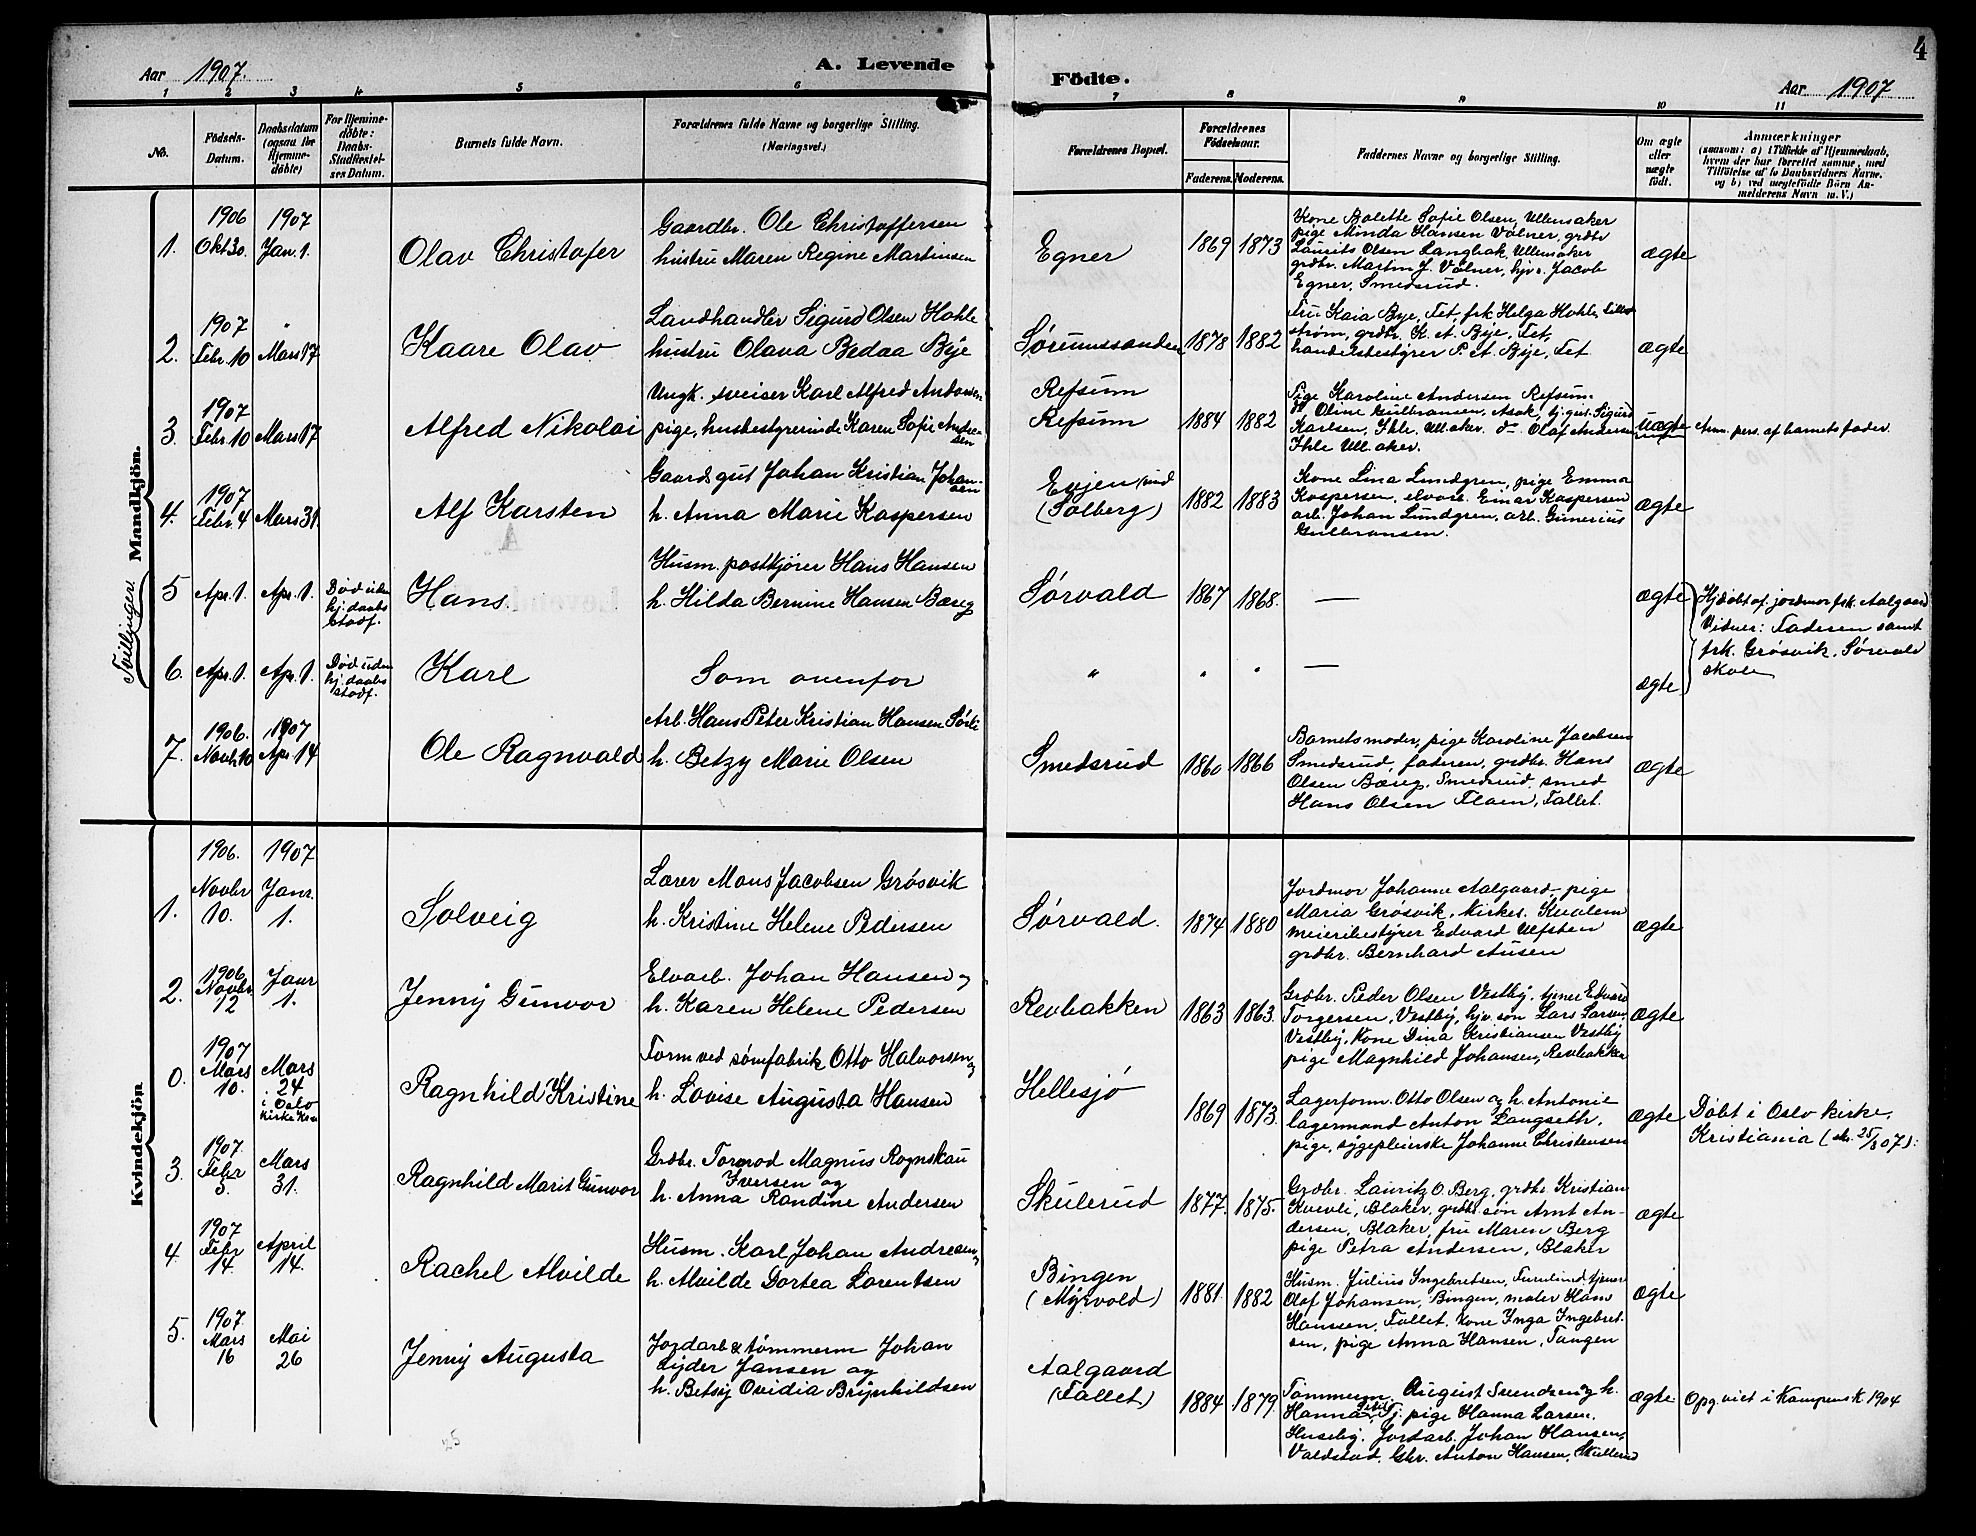 Aar 1907.
A. Levende
Födte.
Aar 1907
4
1 2 3 4 5 6 7 8 9 10 11
No.
Födsels-
Datum.
Daabsdatum
(ogsaa for
Hjemme-
döbte)
For Hjemme-
döbte:
Daabs-
Stadfæstel-
ses Datum.
Barnets fulde Navn.
Forældrenes fulde Navne og borgerlige Stilling.
(Næringsvei.)
Forældrenes Bopæl.
Forældrenes
Födselsaar.
Faderens. Moderens.
Faddernes Navne og borgerlige Stilling.
Om ægte
eller
uægte
födt.
Anmærkninger
(saasom: a) i Tilfælde af Hjemmedaab,
hvem der har forrettet samme, med
Tilföielse af to Daabsvidners Navne,
og b) ved uægtefödte Börn An-
melderens Navn m. V.)
Mandkjön.
1.
1906
Okt 30.
1907
Jan. 1.
Olav Christofer
Gaardbr. Ole Christoffersen
hustru Maren Regine Martinsen
Egner
1869 1873
Kone Bolette Sofie Olsen, Ullensaker
pige Minda Hansen Valner, grdbr
Laurits Olsen Langbak, Ullensaker
grdbr. Martin J. Valner, hjv. s. Jacob
Egner, Smedsrud.
ægte
2.
1907
Febr. 10
"
Mars 17
Kaare Olav
Landhandler Sigurd Olsen Hohle
hustru Olava Bedaa Bye
Sørumssanden
1878 1882
Fru Kaia Bye, Fet, frk Helga Hohle, Lille-
strøm, grdbr. K. A. Bye, Fet,
handelsbestyrer P. A. Bye, Fet
ægte
3.
1907
Febr. 10
Mars 17
Alfred Nikolai
Ungk. sveiser Karl Alfred Andersen
pige, husbestyrerinde Karen Sofie Andre-
asen
Refsum
Refsum
1884 1882
Pige Karoline Andersen Refsum.
do Oline Gulbransen, Asak, tj.gut. Sigurd
Karlsen, Ihle, Ull.aker. do Olaf Andersen
Ihle Ull.aker.
uægte
Anm. pers. af barnets fader.
4.
1907
Febr. 4
Mars 31.
Alf Karsten
Gaardsgut Johan Kristian Johan-
sen
h. Anna Marie Kaspersen
Evjen (und
(Solberg)
1882 1883
Kone Lina Lundgren, pige Emma
Kaspersen, elvarb. Einar Kaspersen
arb. Johan Lundgren, arb. Gunerius
Gulbransen.
ægte
Tvillinger.
5
Apr. 1.
Apr. 1.
Død uden
hj. daabs
stadf.
Hans
Husm. postkjører Hans Hansen
h. Hilda Bernine Hansen Bæreg
Sørvald
1867 1868.
—
ægte
Hj.døbt af jordmor frk. Aalgaard
Vidner: Faderen samt
frk. Grøsvik, Sørvald
skole
6.
Apr. 1.
Apr. 1.
Død uden
hj. daabs
stadf.
Karl
Som ovenfor
" " "
—
ægte
7.
1906.
Novb. 10
1907
Apr. 14
Ole Ragnvald
Arb. Hans Peter Kristian Hansen Sørli
h. Betzy Marie Olsen
Smedsrud
1860 1866
Barnets moder, pige Karoline Jacobsen
Smedsrud, faderen, grdbr. Hans
Olsen Bæreg, Smedsrud, smed
Hans Olsen Floen, Fallet.
ægte
Kvindekjön
1.
1906.
Novbr
10.
1907
Janr.
1.
Solveig
Lærer Mons Jacobsen Grøsvik
h. Kristine Helene Pedersen
Sørvald.
1874 1880
Jordmor Johanne Aalgaard, pige
Maria Grøsvik, Kirkes. Kvalem
meieribestyrer Edvard Ulfsten
grdbr. Bernhard Ausen
ægte
2.
1906
Novbr
12
Janr
1.
Jenny Gunvor
Elvarb. Johan Hansen og
h. Karen Helene Pedersen
Revbakken
1863 1863.
Grdbr. Peder Olsen Vestby, tjener Edvard
Torgersen, Vestby, hjv. søn Lars Larsen
Vestby, Kone Dina Kristiansen Vestby
pige Magnhild Johansen, Revbakken
ægte
0.
1907
Mars
10.
Mars
24
i Oslo
kirke Kra
Ragnhild Kristine
Form. ved sømfabrik Otto Halvorsen og
h. Lovise Augusta Hansen
Hellesjø
1869 1873.
Lagerform. Otto Olsen og h. Antonie
lagermand Anton Langseth,
pige, sygepleierske Johanne Christensen
ægte
Døbt i Oslo kirke,
Kristiania
3
1907.
Febr
3.
Mars
31.
Ragnhild Marit Gunvor
Grdbr. Tormod Magnus Rognskau
Iversen og
h. Anna Randine Andersen
Skulerud
1877. 1875.
Grdbr. Lauritz O. Berg, grdbr. Kristian
Kvevli, Blaker, grdbr. søn Arnt An-
dersen, Blaker, fru Maren Berg
pige Petra Andersen, Blaker
ægte
4
1907
Febr
14.
April
14.
Rachel Alvilde
Husm. Karl Johan Andresen
h. Alvilde Dortea Lorentsen
Bingen
(Myrvold)
1881. 1882
Husm. Julius Ingebretsen, Furulund, tjener
Olaf Johansen, Bingen, maler Hans
Hanssen, Fallet, Kone Inga Ingebret-
sen, pige Anna Hansen, Tangen
ægte
5.
1907.
Mars
16
Mai
26
Jenny Augusta
Jordarb & tømmerm Johan
Lyder Jansen og
h. Betsy Ovidia Brynhildsen
Aalgaard
(Fallet)
1884 1879.
Tømmerm. August Svendsen og h.
Hanna, pige Hanna Larsen,
Huseby, Jordarb. Johan Hansen,
Valdstad, Gbr. Anton Hansen, Skullerud
ægte
Opg. viet i Kampens k. 1904
25